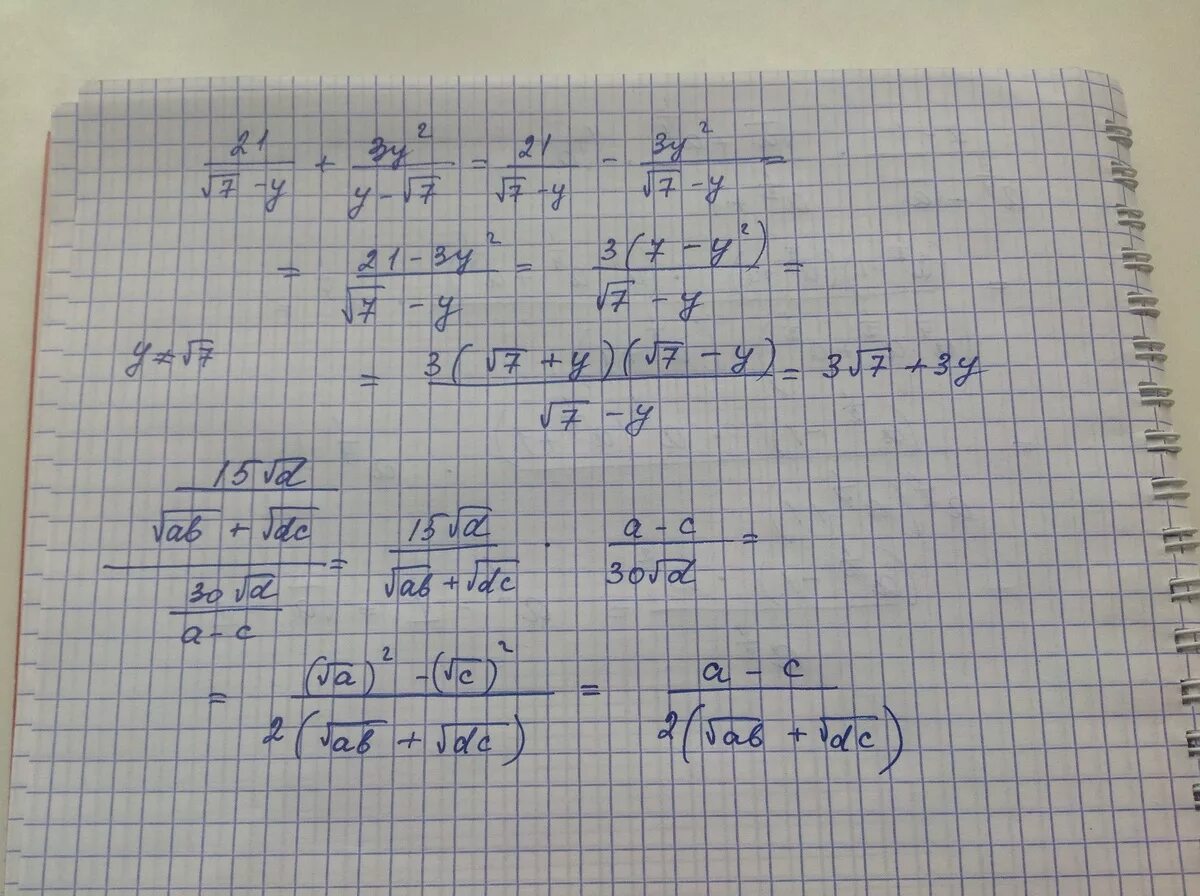 21/(√7 - y) + 3y²/(y - √7) = 21/(√7 - y) - 3y²/(√7 - y) =
= (21 - 3y²)/(√7 - y) = 3(7 - y²)/(√7 - y) =
y ≠ √7
= 3(√7 + y)(√7 - y)/(√7 - y) = 3√7 + 3y
(15√d/(√ab + √dc))/(30√d/(a - c)) = 15√d/(√ab + √dc) · (a - c)/(30√d) =
= ((√a)² - (√c)²)/(2(√ab + √dc)) = (a - c)/(2(√ab + √dc))